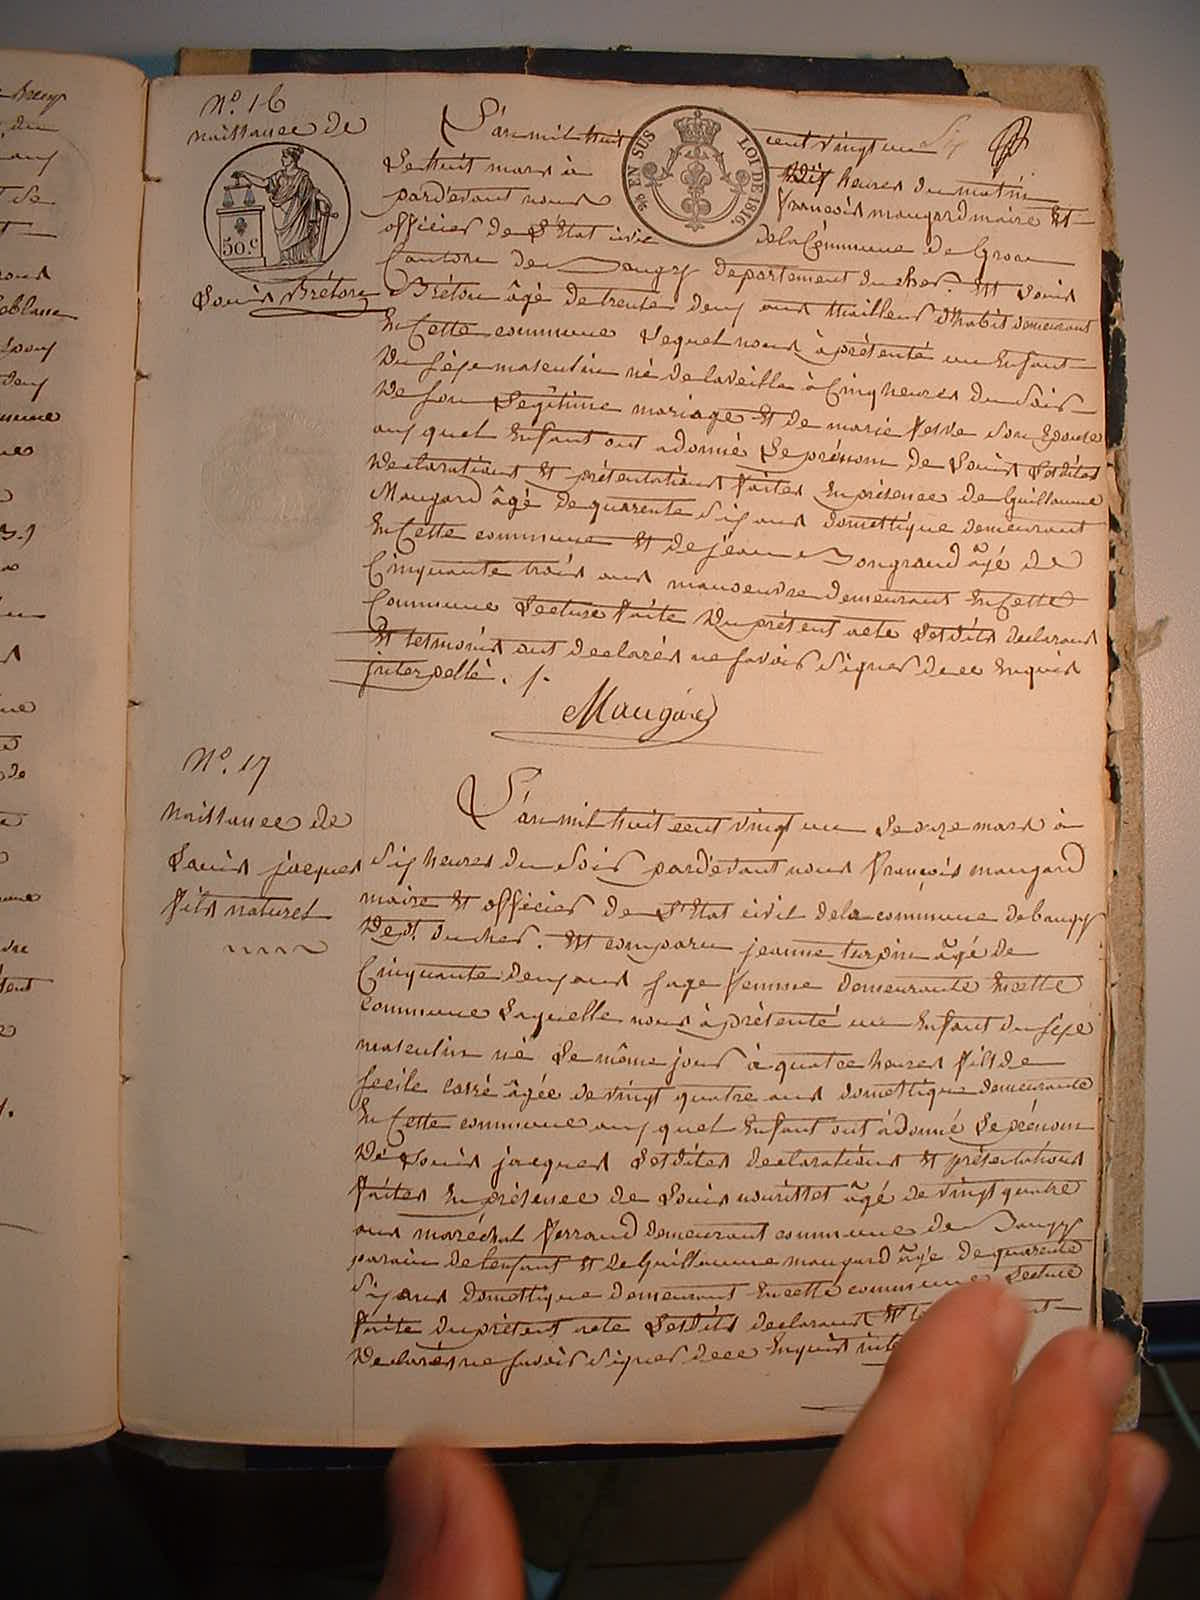 N.o 16
naissance de
Louis Bréton
50.c
EN SUS LOI DE 1816.
L'an mil huit cent vingt un
Le huit mars à dix heures du matin
pardevant nous françois maugard maire Et
officier de L'Etat civil de la Commune de Gron
Canton de Baugy departement du cher. Est Louis
Bréton âgé de trente deux ans tailleur d'habit demeurant
En Cette commune Lequel nous à présenté un Enfant
Du sexe masculin né de la veille à Cinq heures du Soir
De son Légitime mariage Et de marie son Epouse
auquel Enfant ont adonné Le prénom de Louis Lesdites
Declarations Et présentations faites En présence de Guillaume
Maugard âgé de quarente Six ans domestique demeurant
En Cette commune Et de jean Bongrand âgé de
Cinquante trois ans manoeuvre demeurant En Cette
Commune Lecture faite Du présent acte Lesdits declarans
Et temoins ont declarés ne savoir signer de ce Enquis
interpellé. /.
Maugard
N.o 17
naissance de
Louis jacques
fils naturel
L'an mil huit cent vingt un Le onze mars à
Six heures du Soir pardevant nous françois maugard
maire Et officier de L'Etat civil de la commune de baugy
Dep.t du cher. Est comparu jeanne turpin âgé de
Cinquante deux ans sage femme demeurante En cette
Commune Laquelle nous à présenté un Enfant du sexe
masculin né Le même jour à quatre heures fils de
secile carré âgée de vingt quatre ans domestique demeurante
En Cette commune auquel Enfant ont à donné Le prénom
De Louis jacques Lesdites declarations Et présentations
faites En présence de Louis nourisset âgé de vingt quatre
ans maréchal ferrand demeurant commune de Baugy
parain de lenfant Et de Guillaume maugard âgé de quarente
Six ans domestique demeurant En cette commune Lecture
faite du présent acte Lesdits declarans Et
Declarés ne savoir signer de ce Enquis